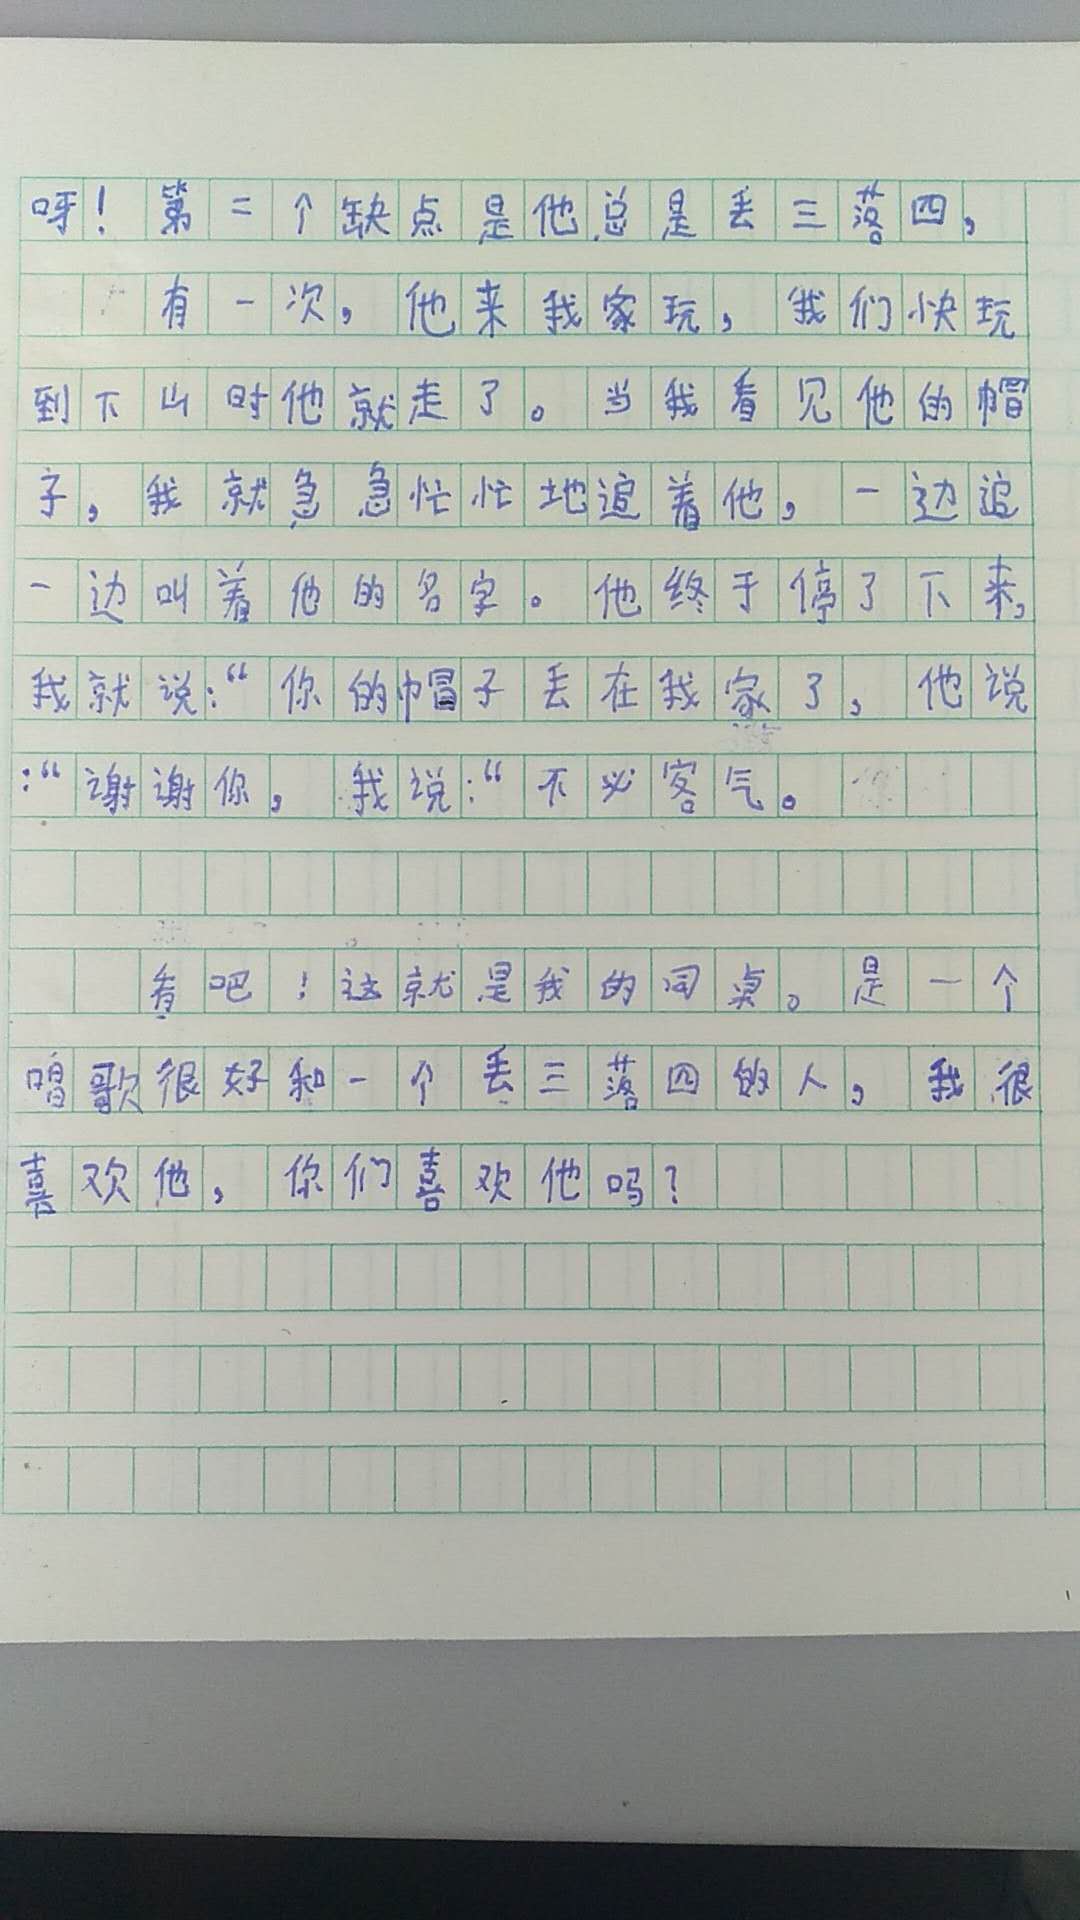 呀！第二个缺点是他总是丢三落四，
有一次，他来我家玩，我们快玩
到下山时他就走了。当我看见他的帽
子，我就急急忙忙地追着他，一边追
一边叫着他的名字。他终于停了下来，
我就说：“你的帽子丢在我家了，他说
：“谢谢你，我说：“不必客气。
看吧！这就是我的同桌。是一个
唱歌很好和一个丢三落四的人，我很
喜欢他，你们喜欢他吗？